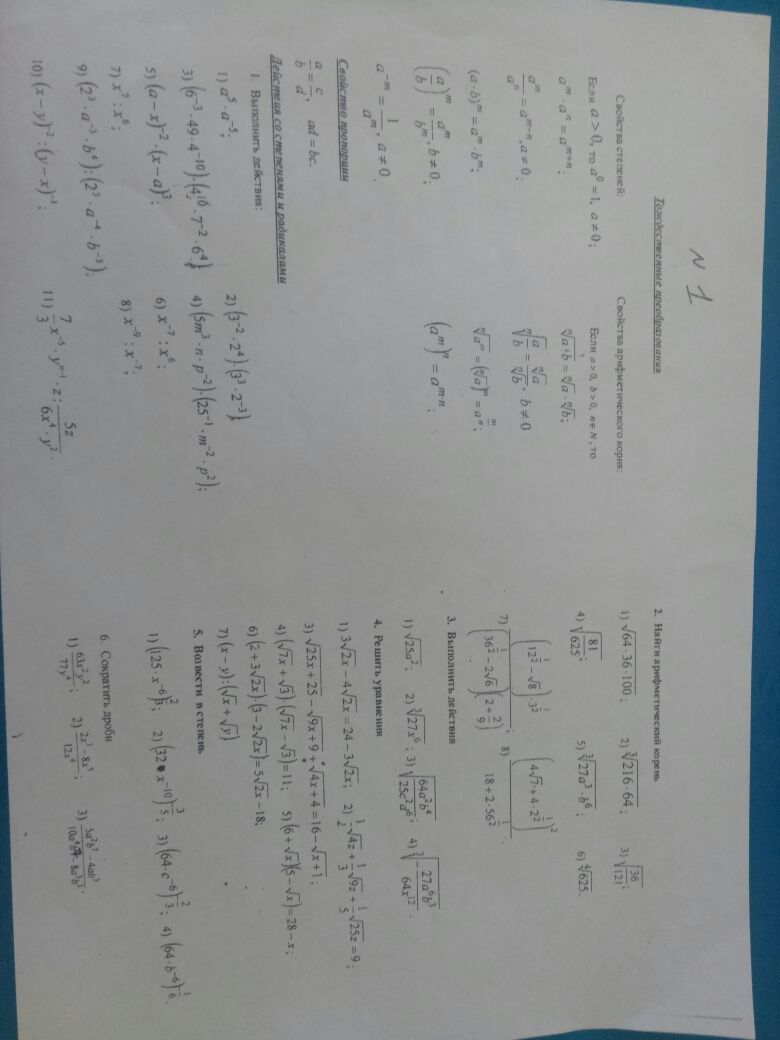 N 1
Тождественные преобразования
Свойства степеней:
Если a > 0, то a^0 = 1, a ≠ 0;
a^m · a^n = a^{m+n};
a^m / a^n = a^{m−n}, a ≠ 0;
(a · b)^m = a^m · b^m;
(a/b)^m = a^m / b^m, b ≠ 0;
a^{−m} = 1 / a^m, a ≠ 0.
Свойства арифметического корня:
Если a > 0, b > 0, n ∈ N, то
ⁿ√(a·b) = ⁿ√a · ⁿ√b;
ⁿ√(a/b) = ⁿ√a / ⁿ√b, b ≠ 0
ⁿ√(a^m) = (ⁿ√a)^m = a^{m/n};
(a^m)^n = a^{m·n};
Свойство пропорции
a/b = c/d, ad = bc.
Действия со степенями и радикалами
1. Выполнить действия:
1) a^5 · a^{−5};
2) (3^{−2} · 2^4) · (3^3 · 2^{−3})
3) (6^{−3} · 49 · 4^{−10}) · (4^{10} · 7^{−2} · 6^4)
4) (5m^3 · n · p^{−2}) · (25^{−1} · m^{−2} · p^2);
5) (a − x)^{−2} · (x − a)^3;
6) x^{−7} : x^6;
7) x^7 : x^6;
8) x^{−9} : x^{−7};
9) (2^3 · a^{−3} · b^4) : (2^3 · a^{−4} · b^{−3});
10) (x − y)^{−2} : (y − x)^{−1};
11) 7/3 x^{−5} · y^{n−1} · z : 5z / (6x^4 · y^2).
2. Найти арифметический корень
1) √(64 · 36 · 100); 2) ³√(216 · 64); 3) √(36/121);
4) √(81/625); 5) ³√(27a^3 · b^6); 6) ⁴√625.
7) (12^{1/2} − √8) · 3^{1/2} / (36^{1/2} − 2√6)(2 + 2/9); 8) (4√7 + 4 · 2^{1/2})^2 / 18 + 2 · 56^{1/2}
3. Выполнить действия
1) √(25a^2); 2) ³√(27x^6); 3) √(64a^2b^4 / 25c^2d^6); 4) ³√(−27a^6b^3 / 64x^{12}).
4. Решить уравнения
1) 3√2x − 4√2x = 24 − 3√2x; 2) 1/2 √4z + 1/3 √9z + 1/5 √25z = 9;
3) √(25x + 25) − √(9x + 9) + √(4x + 4) = 16 − √(x + 1);
4) (√7x + √3) · (√7x − √3) = 11; 5) (6 + √x)(5 − √x) = 28 − x;
6) (2 + 3√2x) · (3 − 2√2x) = 5√2x − 18;
7) (x − y) : (√x + √y)
5. Возвести в степень
1) (125 · x^{−6})^{2/3}; 2) (32 · x^{−10})^{3/5}; 3) (64 · c^{−6})^{2/3}; 4) (64 · b^{−6})^{1/6}.
6. Сократить дроби
1) 63x^2y^2 / 77y^4; 2) 2x^3 − 8x^5 / 12x^4; 3) 5a^2b^7 − 4ab^3